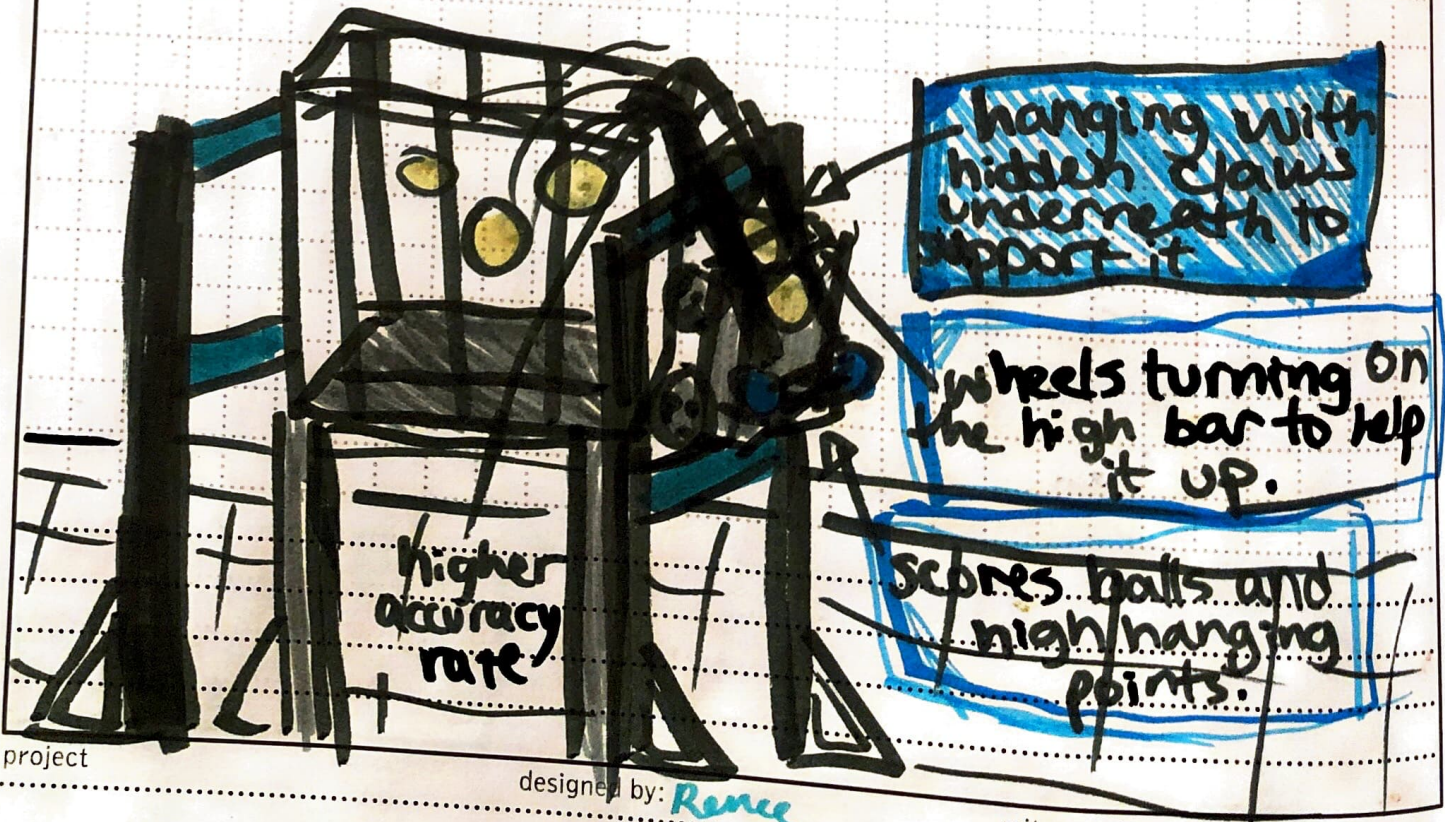 hanging with
hidden claws
underneath to
support it
wheels turning on
the high bar to help
it up.
scores balls and
high hanging
points.
higher
accuracy
rate
project
designed by: Renee